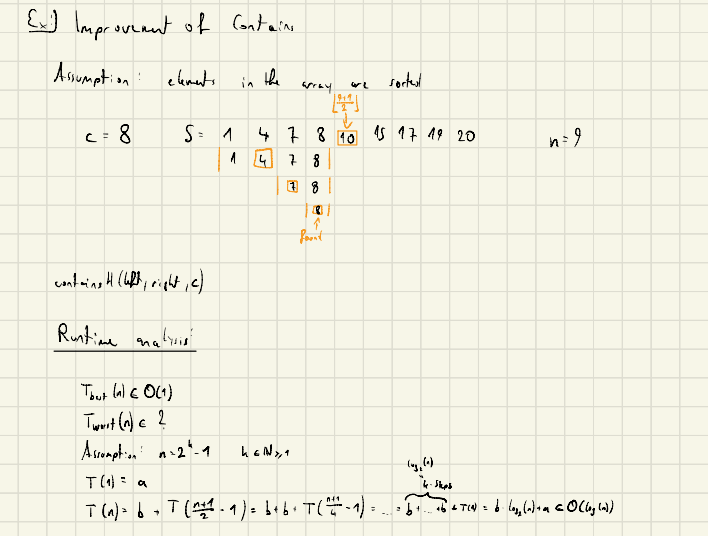 Ex:) Improvement of Contains
Assumption: elements in the array are sorted
⌊(9+1)/2⌋
c = 8 S = 1 4 7 8 10 15 17 19 20 n = 9
| 1 4 7 8 |
| 7 8 |
| 8 |
found
containsH (left, right, c)
Runtime analysis:
T_best (n) ∈ O(1)
T_worst (n) ∈ ?
Assumption: n = 2^k - 1 k ∈ ℕ≥1
T(1) = a
log₂(n)
k-steps
T(n) = b + T((n+1)/2 - 1) = b + b + T((n+1)/4 - 1) = ... = b + ... + b + T(1) = b · log₂(n) + a ∈ O(log(n))